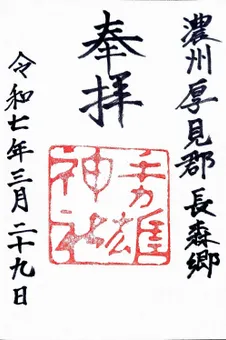 濃州厚見郡長森郷
奉拝
手力雄
神社
令和七年三月二十九日